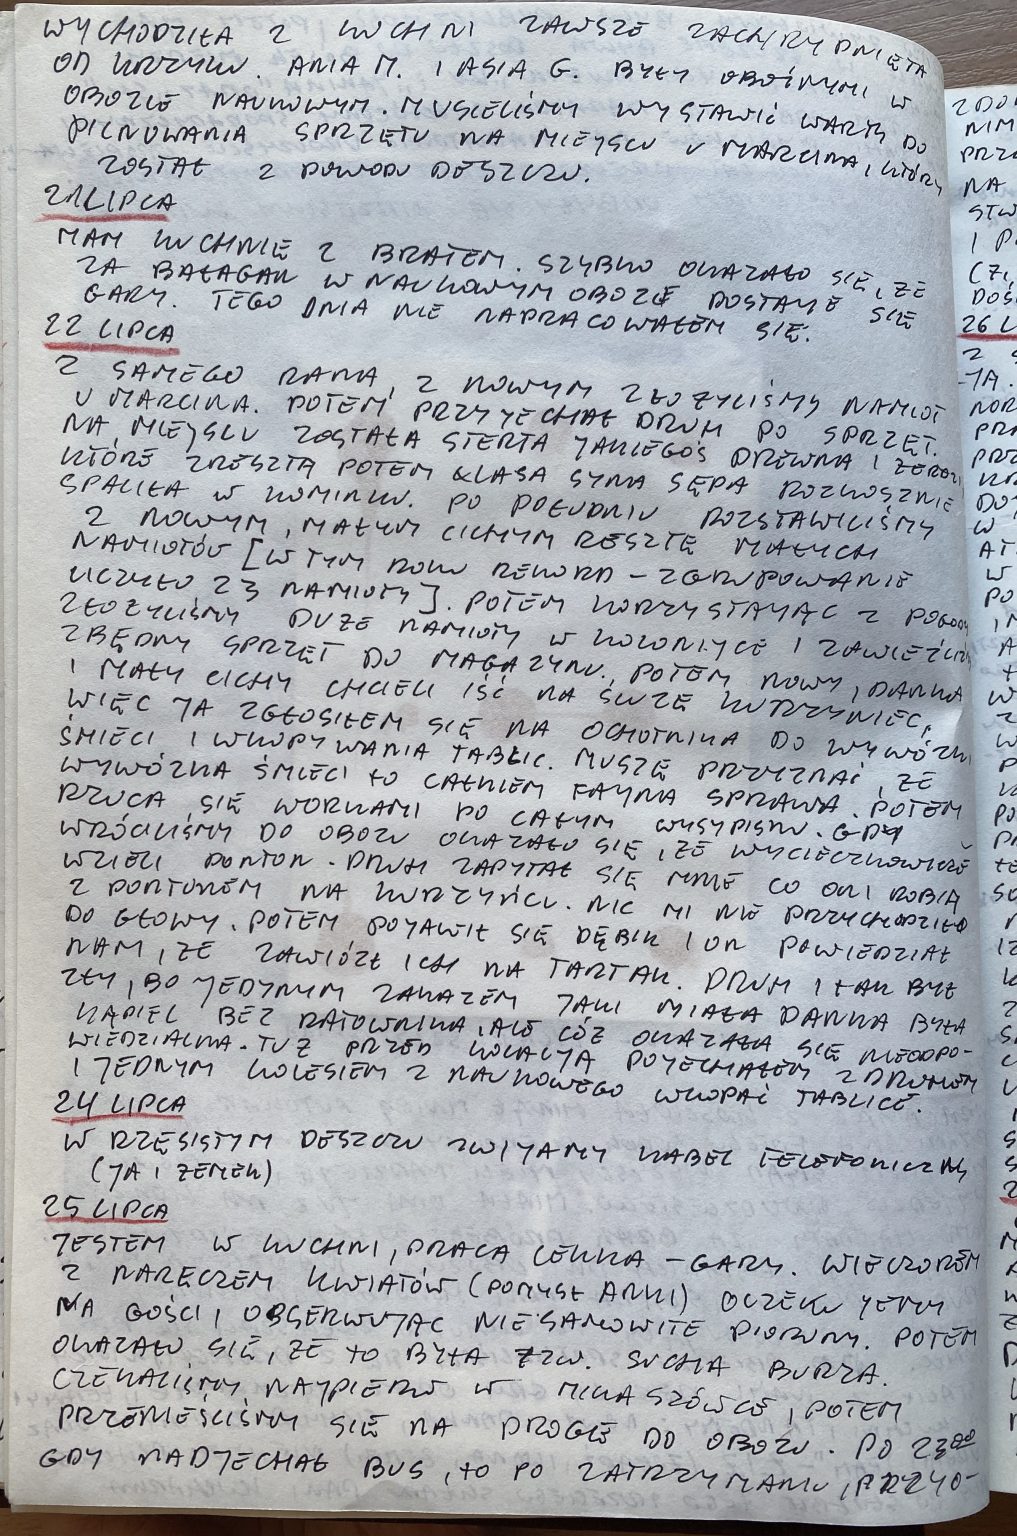 WYCHODZIŁA Z KUCHNI ZAWSZE ZACHRYPNIĘTA
OD KRZYKU. ANIA M. I ASIA G. BYŁY OBOŹNYMI W
OBOZIE NAUKOWYM. MUSIELIŚMY WYSTAWIĆ WARTĘ DO
PILNOWANIA SPRZĘTU NA MIEJSCU U MARCINA, KTÓRY
ZOSTAŁ Z POWODU DESZCZU.
21 LIPCA
MAM KUCHNIĘ Z BRATEM. SZYBKO OKAZAŁO SIĘ, ŻE
ZA BAŁAGAN W NAUKOWYM OBOZIE DOSTAJE SIĘ
GARY. TEGO DNIA NIE NAPRACOWAŁEM SIĘ.
22 LIPCA
Z SAMEGO RANA, Z NOWYM ZŁOŻYLIŚMY NAMIOT
U MARCINA. POTEM PRZYJECHAŁ DRUH PO SPRZĘT.
NA MIEJSCU ZOSTAŁA STERTA JAKIEGOŚ DREWNA I ŻERDZI
KTÓRE ZRESZTĄ POTEM KLASA SYNA SĘPA ROZKOSZNIE
SPALIŁA W KOMINKU. PO POŁUDNIU ROZSTAWILIŚMY
Z NOWYM, MAŁYM CICHYM RESZTĘ MAŁYCH
NAMIOTÓW [W TYM ROKU REKORD – ZGRUPOWANIE
LICZYŁO 23 NAMIOTY]. POTEM KORZYSTAJĄC Z POGODY
ZŁOŻYLIŚMY DUŻE NAMIOTY W KOLONIJCE I ZAWIEŹLIŚMY
ZBĘDNY SPRZĘT DO MAGAZYNU. POTEM NOWY, DANKA
I MAŁY CICHY CHCIELI IŚĆ NA ŚLUZĘ KURZYNIEC,
WIĘC JA ZGŁOSIŁEM SIĘ NA OCHOTNIKA DO WYWÓZKI
ŚMIECI I WKOPYWANIA TABLIC. MUSZĘ PRZYZNAĆ, ŻE
WYWÓZKA ŚMIECI TO CAŁKIEM FAJNA SPRAWA. POTEM
RZUCA SIĘ WORKAMI PO CAŁYM WYSYPISKU. GDY
WRÓCILIŚMY DO OBOZU OKAZAŁO SIĘ, ŻE WYCIECZKOWICZE
WZIELI PONTON. DRUH ZAPYTAŁ SIĘ MNIE CO ONI ROBIĄ
Z PONTONEM NA KURZYŃCU. NIC MI NIE PRZYCHODZIŁO
DO GŁOWY. POTEM POJAWIŁ SIĘ DĘBIK I ON POWIEDZIAŁ
NAM, ŻE ZAWIÓZŁ ICH NA TARTAK. DRUH I TAK BYŁ
ZŁY, BO JEDYNYM ZAKAZEM JAKI MIAŁA DANKA BYŁA
KĄPIEL BEZ RATOWNIKA, ALE CÓŻ OKAZAŁA SIĘ NIEODPO-
WIEDZIALNA. TUŻ PRZED KOLACJĄ POJECHAŁEM Z DRUHEM
I JEDNYM KOLESIEM Z NAUKOWEGO WKOPAĆ TABLICE.
24 LIPCA
W RZĘSISTYM DESZCZU ZWIJAMY KABEL TELEFONICZNY
(JA I ZENEK)
25 LIPCA
JESTEM W KUCHNI, PRACA LEKKA – GARY. WIECZOREM
Z NARĘCZEM KWIATÓW (POMYSŁ ANKI) OCZEKUJEMY
NA GOŚCI, OBSERWUJĄC NIESAMOWITE PIORUNY. POTEM
OKAZAŁO SIĘ, ŻE TO BYŁA TZW. SUCHA BURZA.
CZEKALIŚMY NAJPIERW W MIKASZÓWCE, POTEM
PRZENIEŚLIŚMY SIĘ NA DROGĘ DO OBOZU. PO 23⁰⁰
GDY NADJECHAŁ BUS, TO PO ZATRZYMANIU, PRZYO-